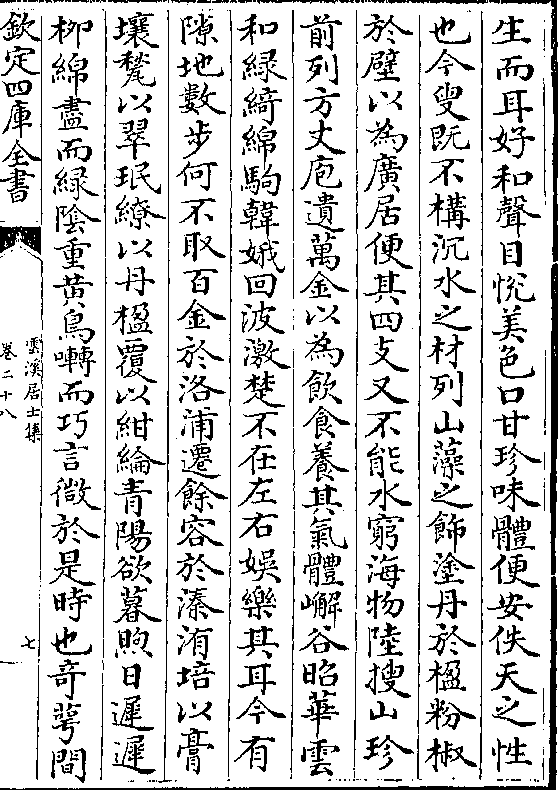 生而耳好和聲目悅美色口甘珍味體便安佚天之性
也今叟既不構沉水之材列山藻之飾塗丹於楹粉椒
於壁以為廣居便其四支又不能水窮海物陸搜山珍
前列方丈庖遺萬金以為飲食養其氣體嶰谷昭華雲
和緑綺綿駒韓娥回波激楚不在左右娯樂其耳今有
隙地數步何不取百金於洛浦遷餘容於溱洧培以膏
壤甃以翠珉繚以丹楹覆以紺綸青陽欲暮煦日遲遲
栁綿盡而緑陰重黄鳥囀而巧言㣲於是時也竒萼間
欽定四庫全書
雲溪居士集
卷二十八
七